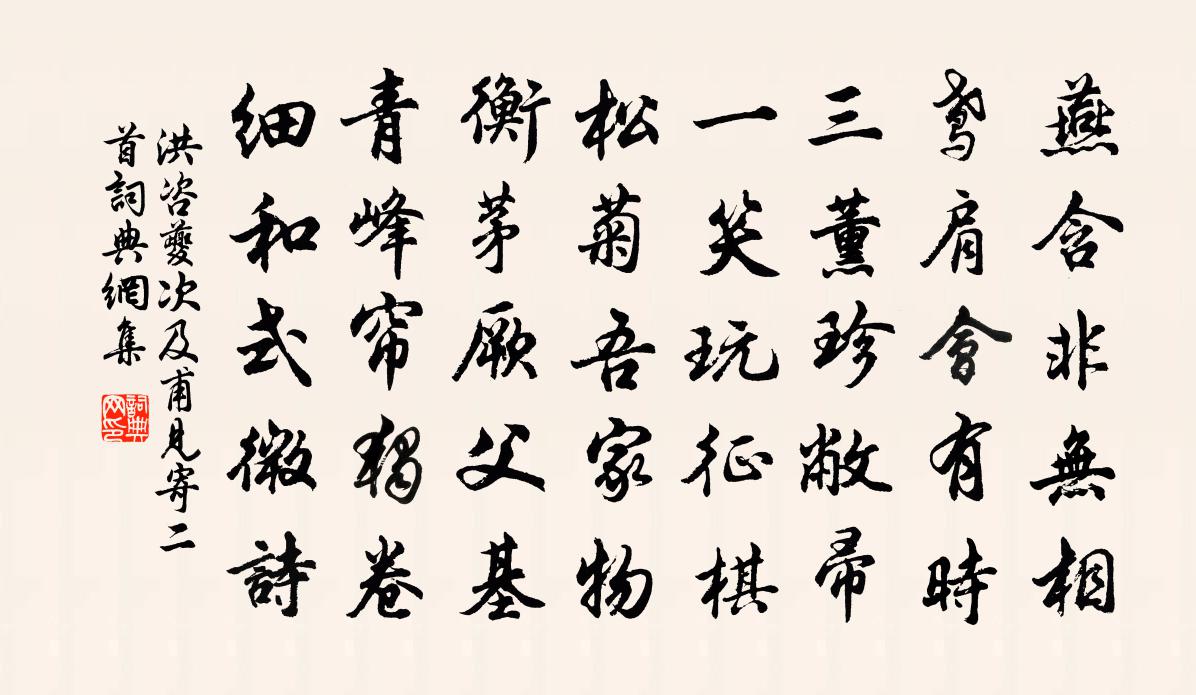 燕含非無相
鳶肩會有時
三薰珍敝帚
一笑玩征棋
松菊吾家物
衡茅厥父基
青峰帘獨卷
細和式微詩
洪咨夔次及甫見寄二
首詞典網集
詞典
网印